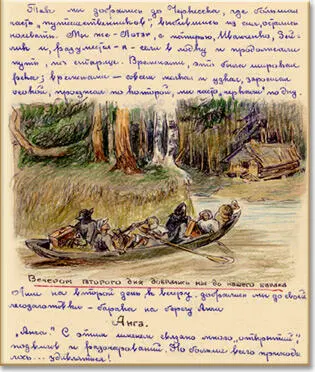 Так мы добрались до Черкесска, где большая
часть „путешественников", выбившись из сил, остались
ночевать. Мы же - Лотар, с которым, Иванченко, Зай-
лик и, разумеется я - сели в лодку и продолжали
путь по старице. Временами, это была широкая
река, временами - совсем мелкая и узкая, заросшая
осокой, продолжая по которой, мы часто „чертили" по дну.
Вечером второго дня добрались мы до нашего барака
Лишь на второй день к вечеру добрались мы до своей
лесозаготовки - барака на берегу Анги
Анга.
„Анга" С этим именем связано много „открытий",
подвигов и разочарований. Но больше всего приходи-
лось... удивляться!